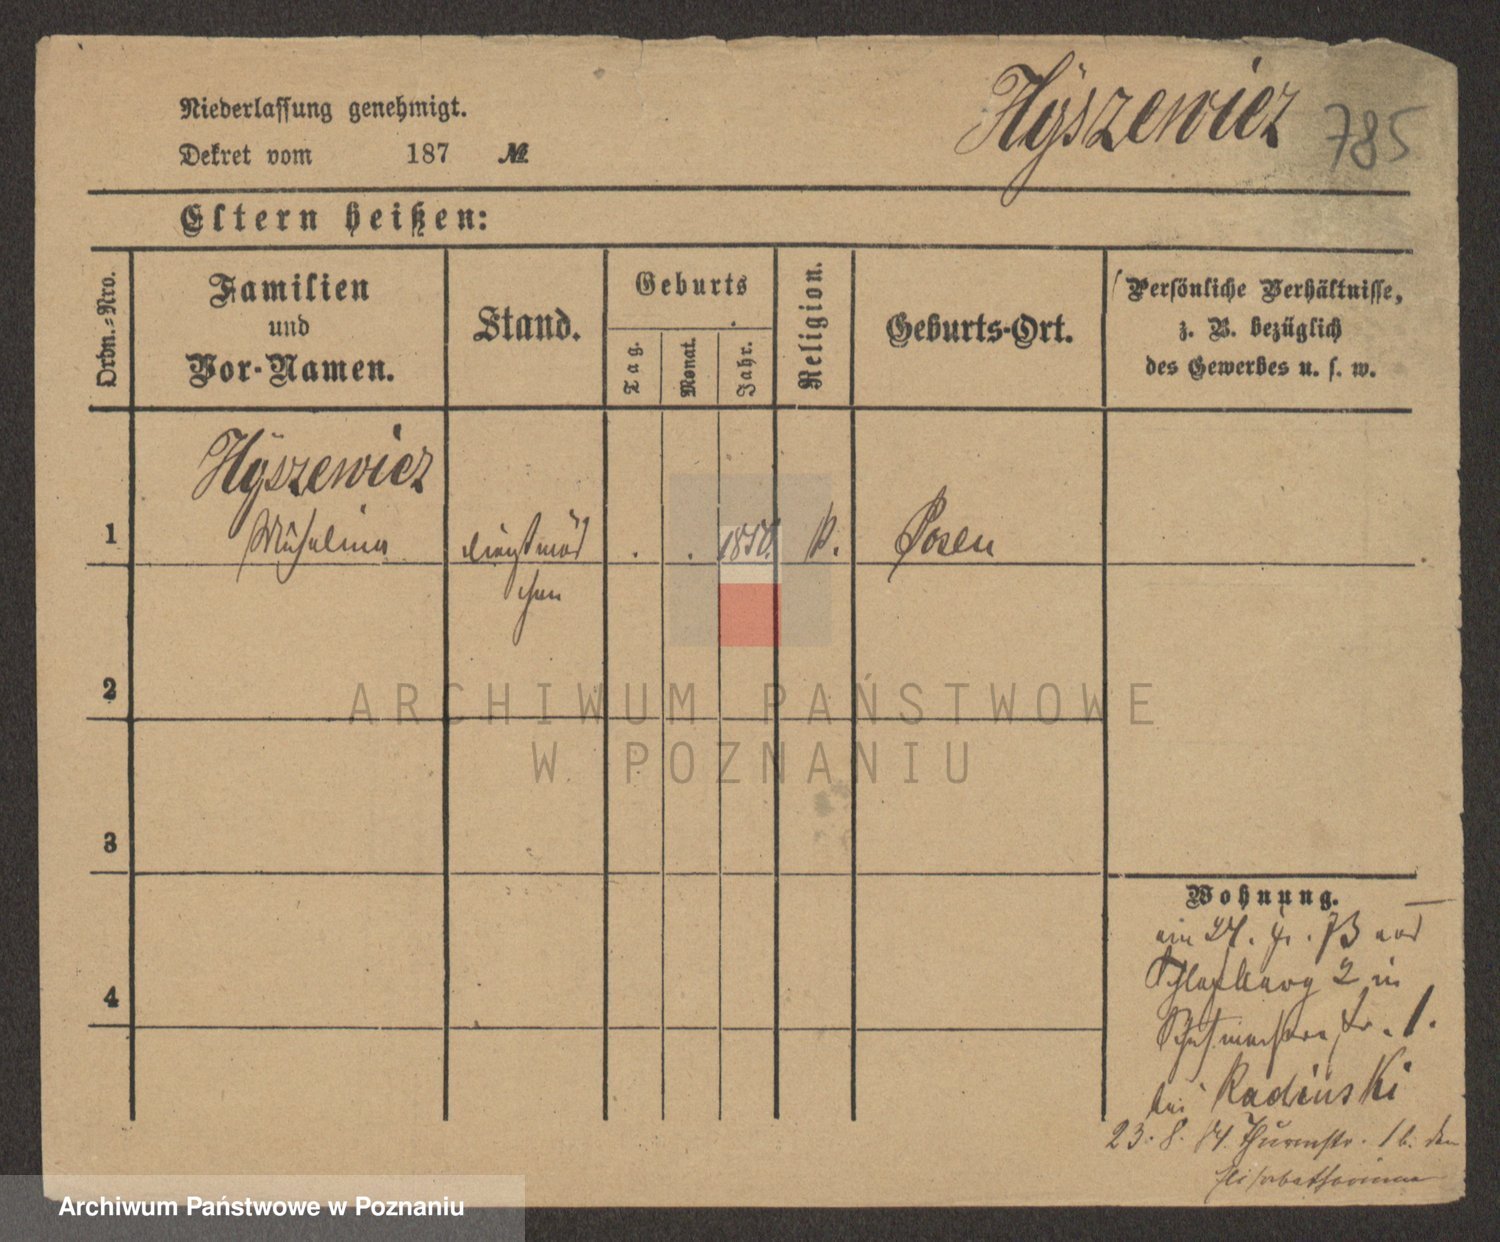 Niederlassung genehmigt.
Dekret vom 187 №
Hÿszewicz 785
Eltern heißen:
Ordn.=Nro.
Familien
und
Vor-Namen.
Stand.
Geburts
Tag.
Monat.
Jahr.
Religion.
Geburts-Ort.
Persönliche Verhältnisse,
z. B. bezüglich
des Gewerbes u. s. w.
Hÿszewicz
1 dienstmäd . . 1850. k. Posen
chen
2
3
4
Wohnung.
24. 73
2 in
1.
bei Radinski
23. 8. 1 b. den
ARCHIWUM PAŃSTWOWE
W POZNANIU
Archiwum Państwowe w Poznaniu